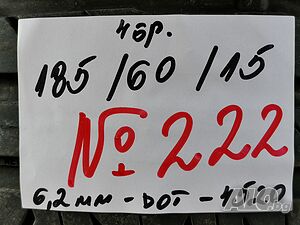 4 бр.
185/60/15
№ 222
6,2 мм - DOT -